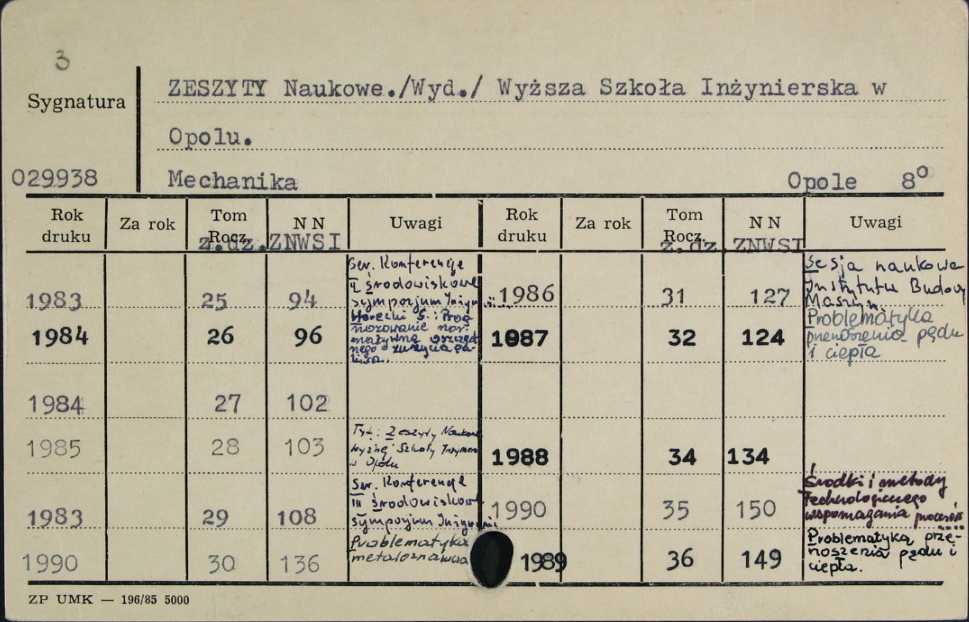 3
Sygnatura
ZESZYTY Naukowe./Wyd./ Wyższa Szkoła Inżynierska w
Opolu.
029938 Mechanika Opole 8°
Rok druku Za rok Tom Rocz. N N Uwagi Rok druku Za rok Tom Rocz. N N Uwagi
z.dz. ZNWSI z.dz. ZNWSI
1983 25 94 Ser. Konferencje
II środowiskowe
sympozjum Inżyn
1986 31 127 Sesja naukowa
Instytutu Budowy
Maszyn
1984 26 96 Horecki S.: Prog
nozowanie nor
matywne oszczęd
nego zużycia pa
liwa.
1987 32 124 Problematyka
przenoszenia pędu
i ciepła
1984 27 102
1985 28 103 Tyt.: Zeszyty Naukowe
Szkoły
w Opolu
1988 34 134
1983 29 108 Ser. Konferencje
III środowiskow
sympozjum
1990 35 150 Środki i metody
technologicznego
wspomagania
1990 30 136 Problematyka
metaloznawcza
1989 36 149 Problematyka prze-
noszenia pędu i
ciepła.
ZP UMK — 196/85 5000